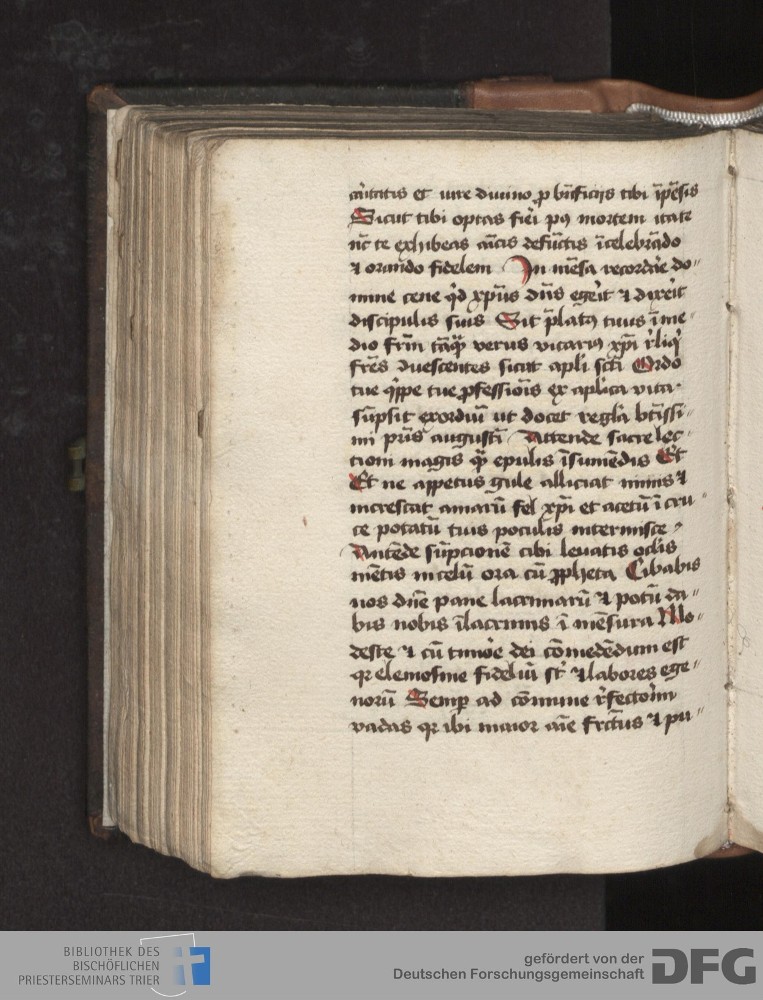 et iure diuino ꝓ bn̄ficijs tibi īpēsis
Sicut tibi optas fieri pꝰ mortem itate
nc̄ te exhibeas aīcis defūctis ī celebrādo
⁊ orando fidelem In mēsa recordae do〃
mine cene qd xpūs dn̄s egerit ⁊ dixerit
discipulis suis Sit p̄latꝰ tuus ī me〃
dio frm̄ tāq̄ꝫ verus vicariꝰ xpī rliqͥ
frēs duescentes sicut apl'i scti Ordo
tue qͥppe tue ꝓfessiōis ex aplīca vita
sūpsit exordiū ut docet regl'a btīssi〃
mi pr̄is augustī Attende sacre lec〃
tioni magis qꝫ̄ epulis īsumēdis Et
Et ne appetus gule alliciat nimis ⁊
increscat amarū fel xpī et acetū ī cru〃
ce potatū tuis poculis intermisce〃
Antēde sūpcionē cibi leuatis oclis
mētis in celū ora cū ꝓpheta Cibabis
nos dn̄e pane lacrimarū ⁊ potū da〃
bis nobis ī lacrimis ī mēsura Mo〃
deste ⁊ cū timore dei cōmedēdum est
qꝛ elemosine fideliū st̄ ⁊ labores ege〃
norū Semꝑ ad cōmune rfectorm
vadas qꝛ ibi maior aīe frctus ⁊ pu〃
BIBLIOTHEK DES
BISCHÖFLICHEN
PRIESTERSEMINARS TRIER
gefördert von der
Deutschen Forschungsgemeinschaft
DFG